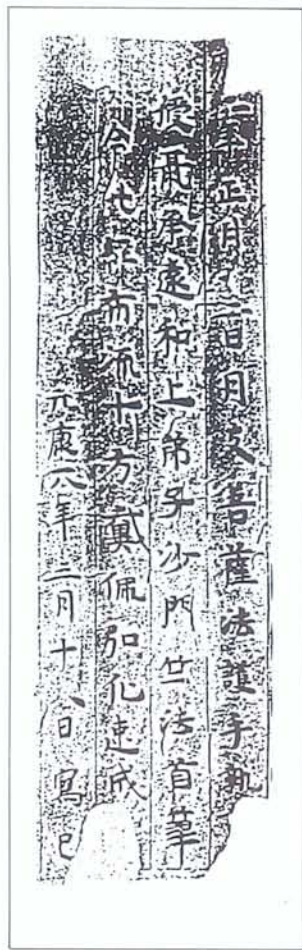 二年正月廿二日月支菩薩法護手執
授聶承遠和上弟子沙門竺法首筆
令此經布流十方戴佩弘化速成
元康六年三月十八日寫已